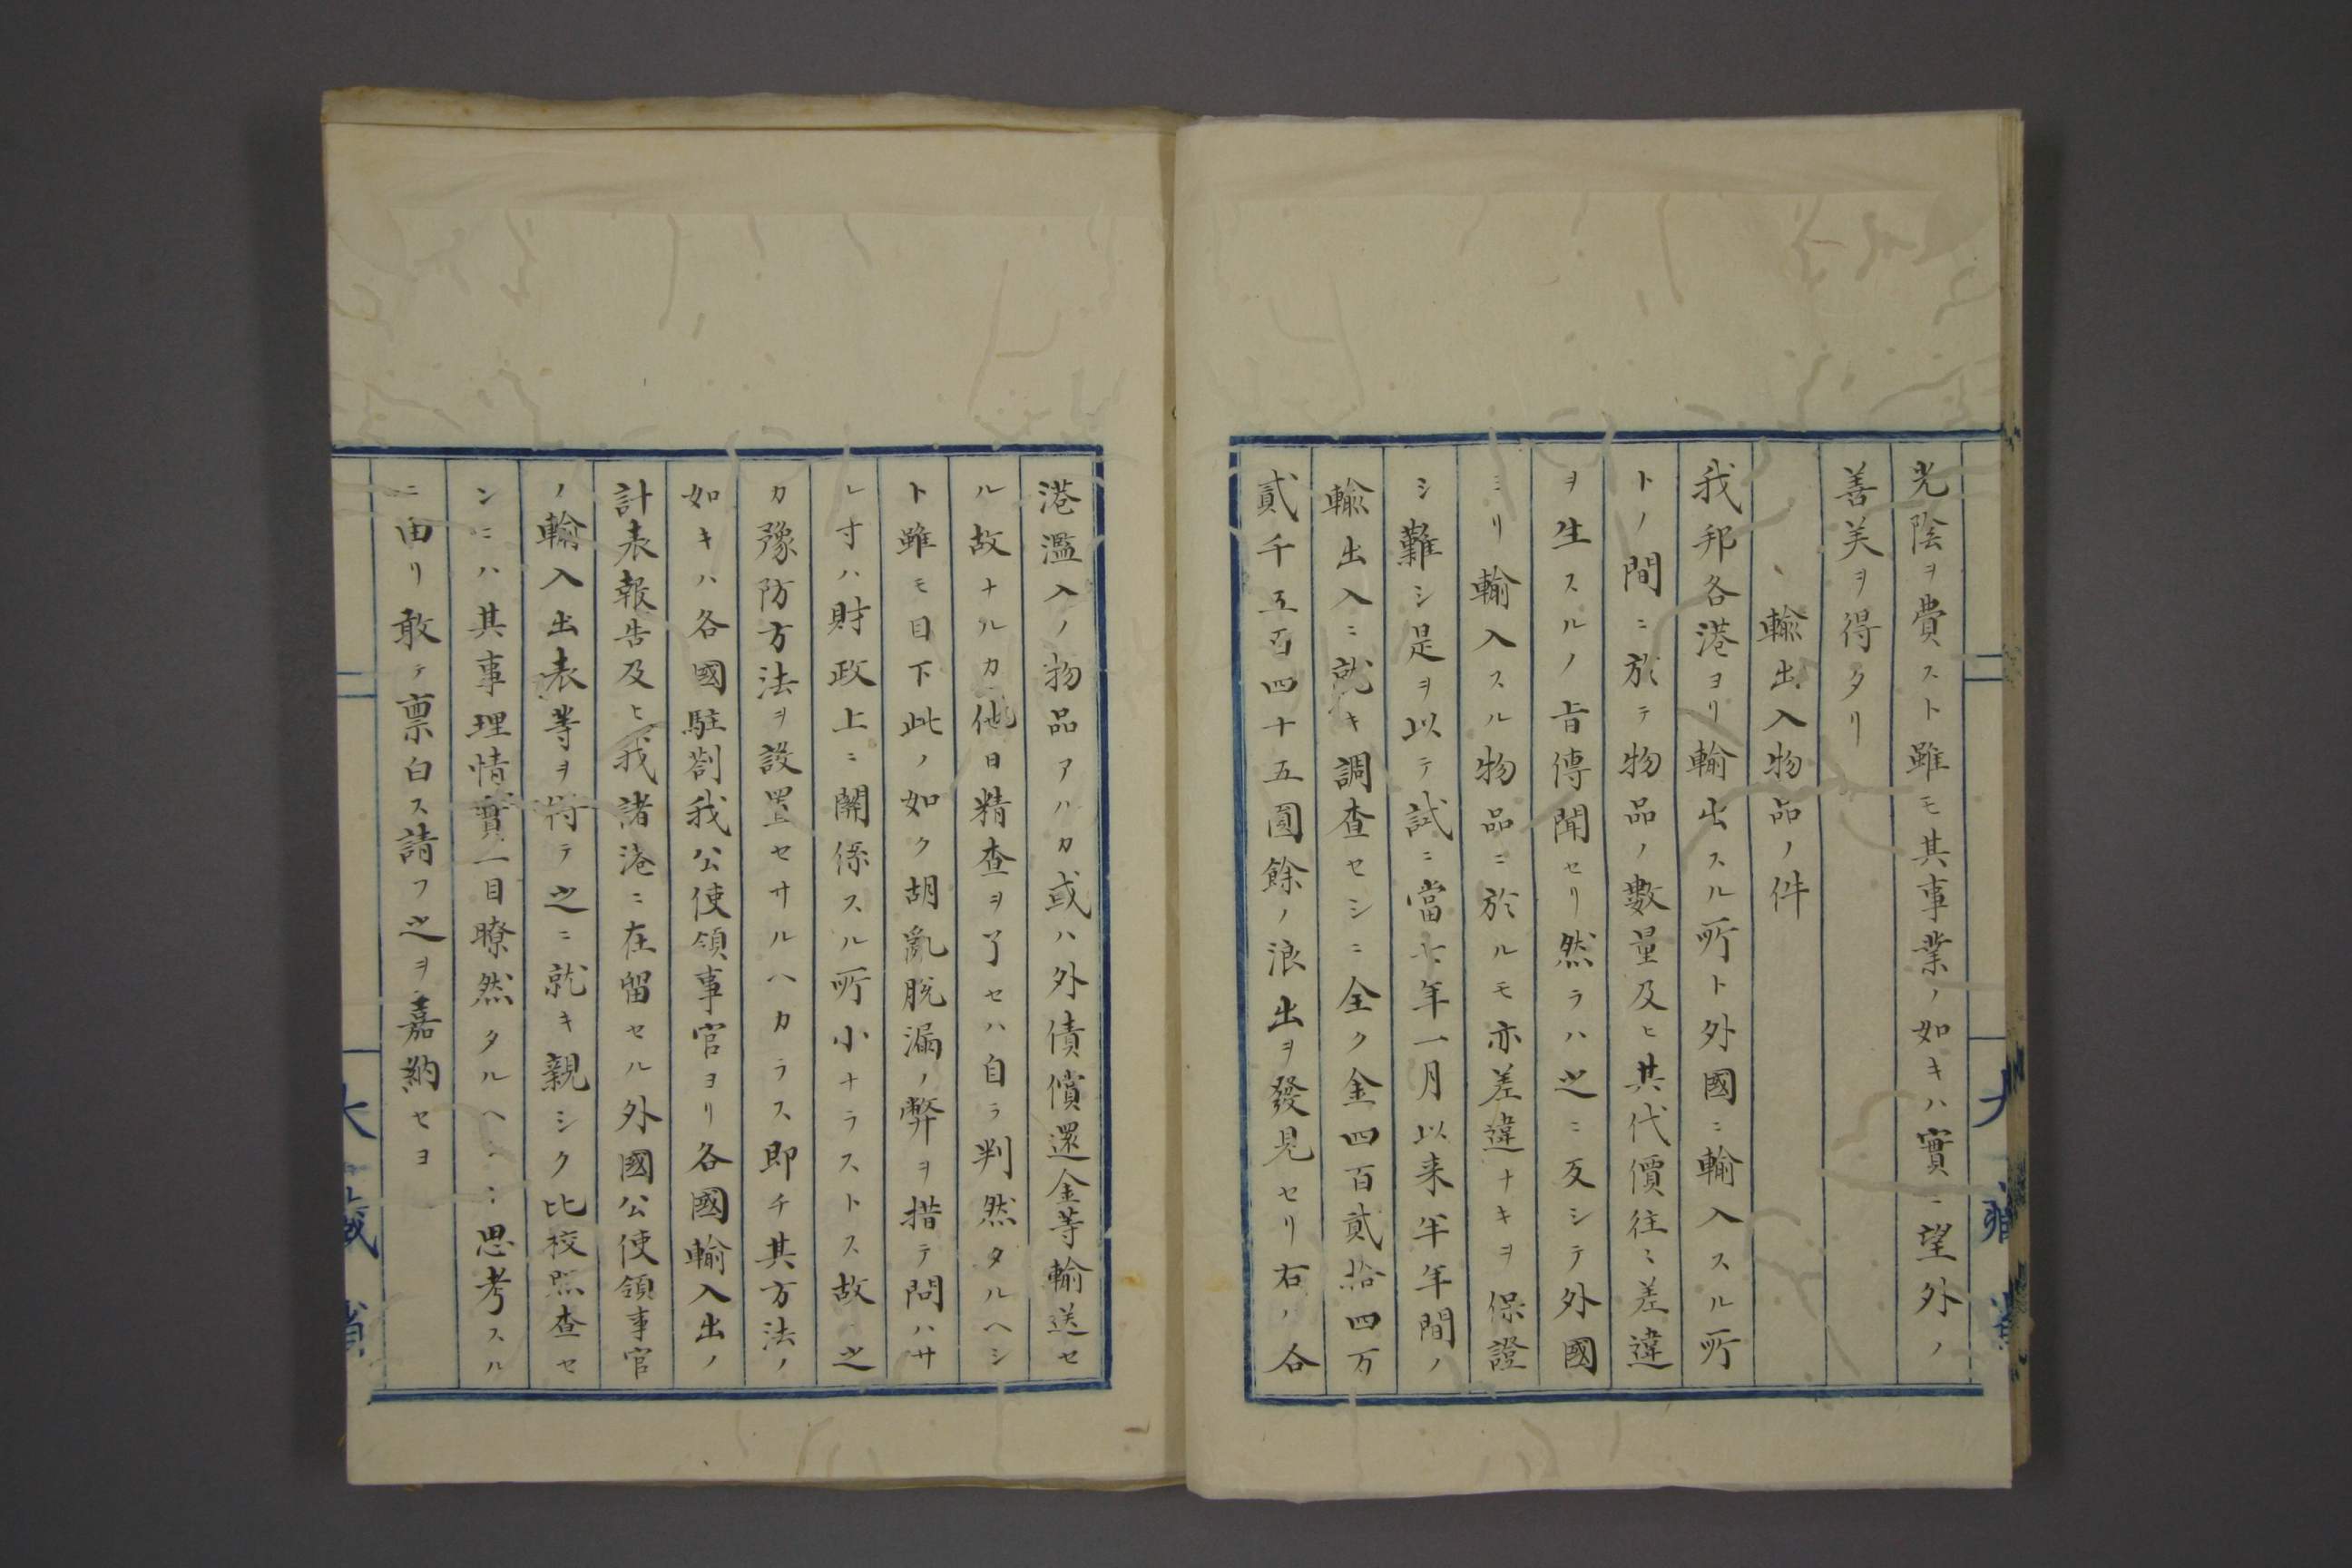 光陰ヲ費スト雖モ其事業ノ如キハ實ニ望外ノ
善美ヲ得タリ
輸出入物品ノ件
我邦各港ヨリ輸出スル所ト外國ニ輸入スル所
トノ間ニ於テ物品ノ數量及ヒ其代價往々差違
ヲ生スルノ旨傳聞セリ然ラハ之ニ反シテ外國
ヨリ輸入スル物品ニ於ルモ亦差違ナキヲ保證
シ難シ是ヲ以テ試ニ當七年一月以来半年間ノ
輸出入ニ就キ調査セシニ全ク金四百貳拾四万
貳千五百四十五圓餘ノ浪出ヲ發見セリ右ノ合
港濫入ノ物品アハカ或ハ外債償還金等輸送セ
ル故ナルカ他日精査ヲ了セハ自ラ判然タルヘシ
ト雖モ目下此ノ如ク胡亂脱漏ノ弊ヲ措テ問ハサ
レ寸ハ財政上ニ關係スル所小ナラストス故ニ之
カ豫防方法ヲ設置セサルヘカラス即チ其方法ノ
如キハ各國駐劄我公使領事官ヨリ各國輸入出ノ
計表報告及ヒ我諸港ニ在留セル外國公使領事官
ノ輸入出表等ヲ得テ之ニ就キ親シク比校照査セ
ンニハ其事理情實一目瞭然タルヘシト思考スル
ニ由リ敢テ禀白ス請フ之ヲ嘉納セヨ
大藏省